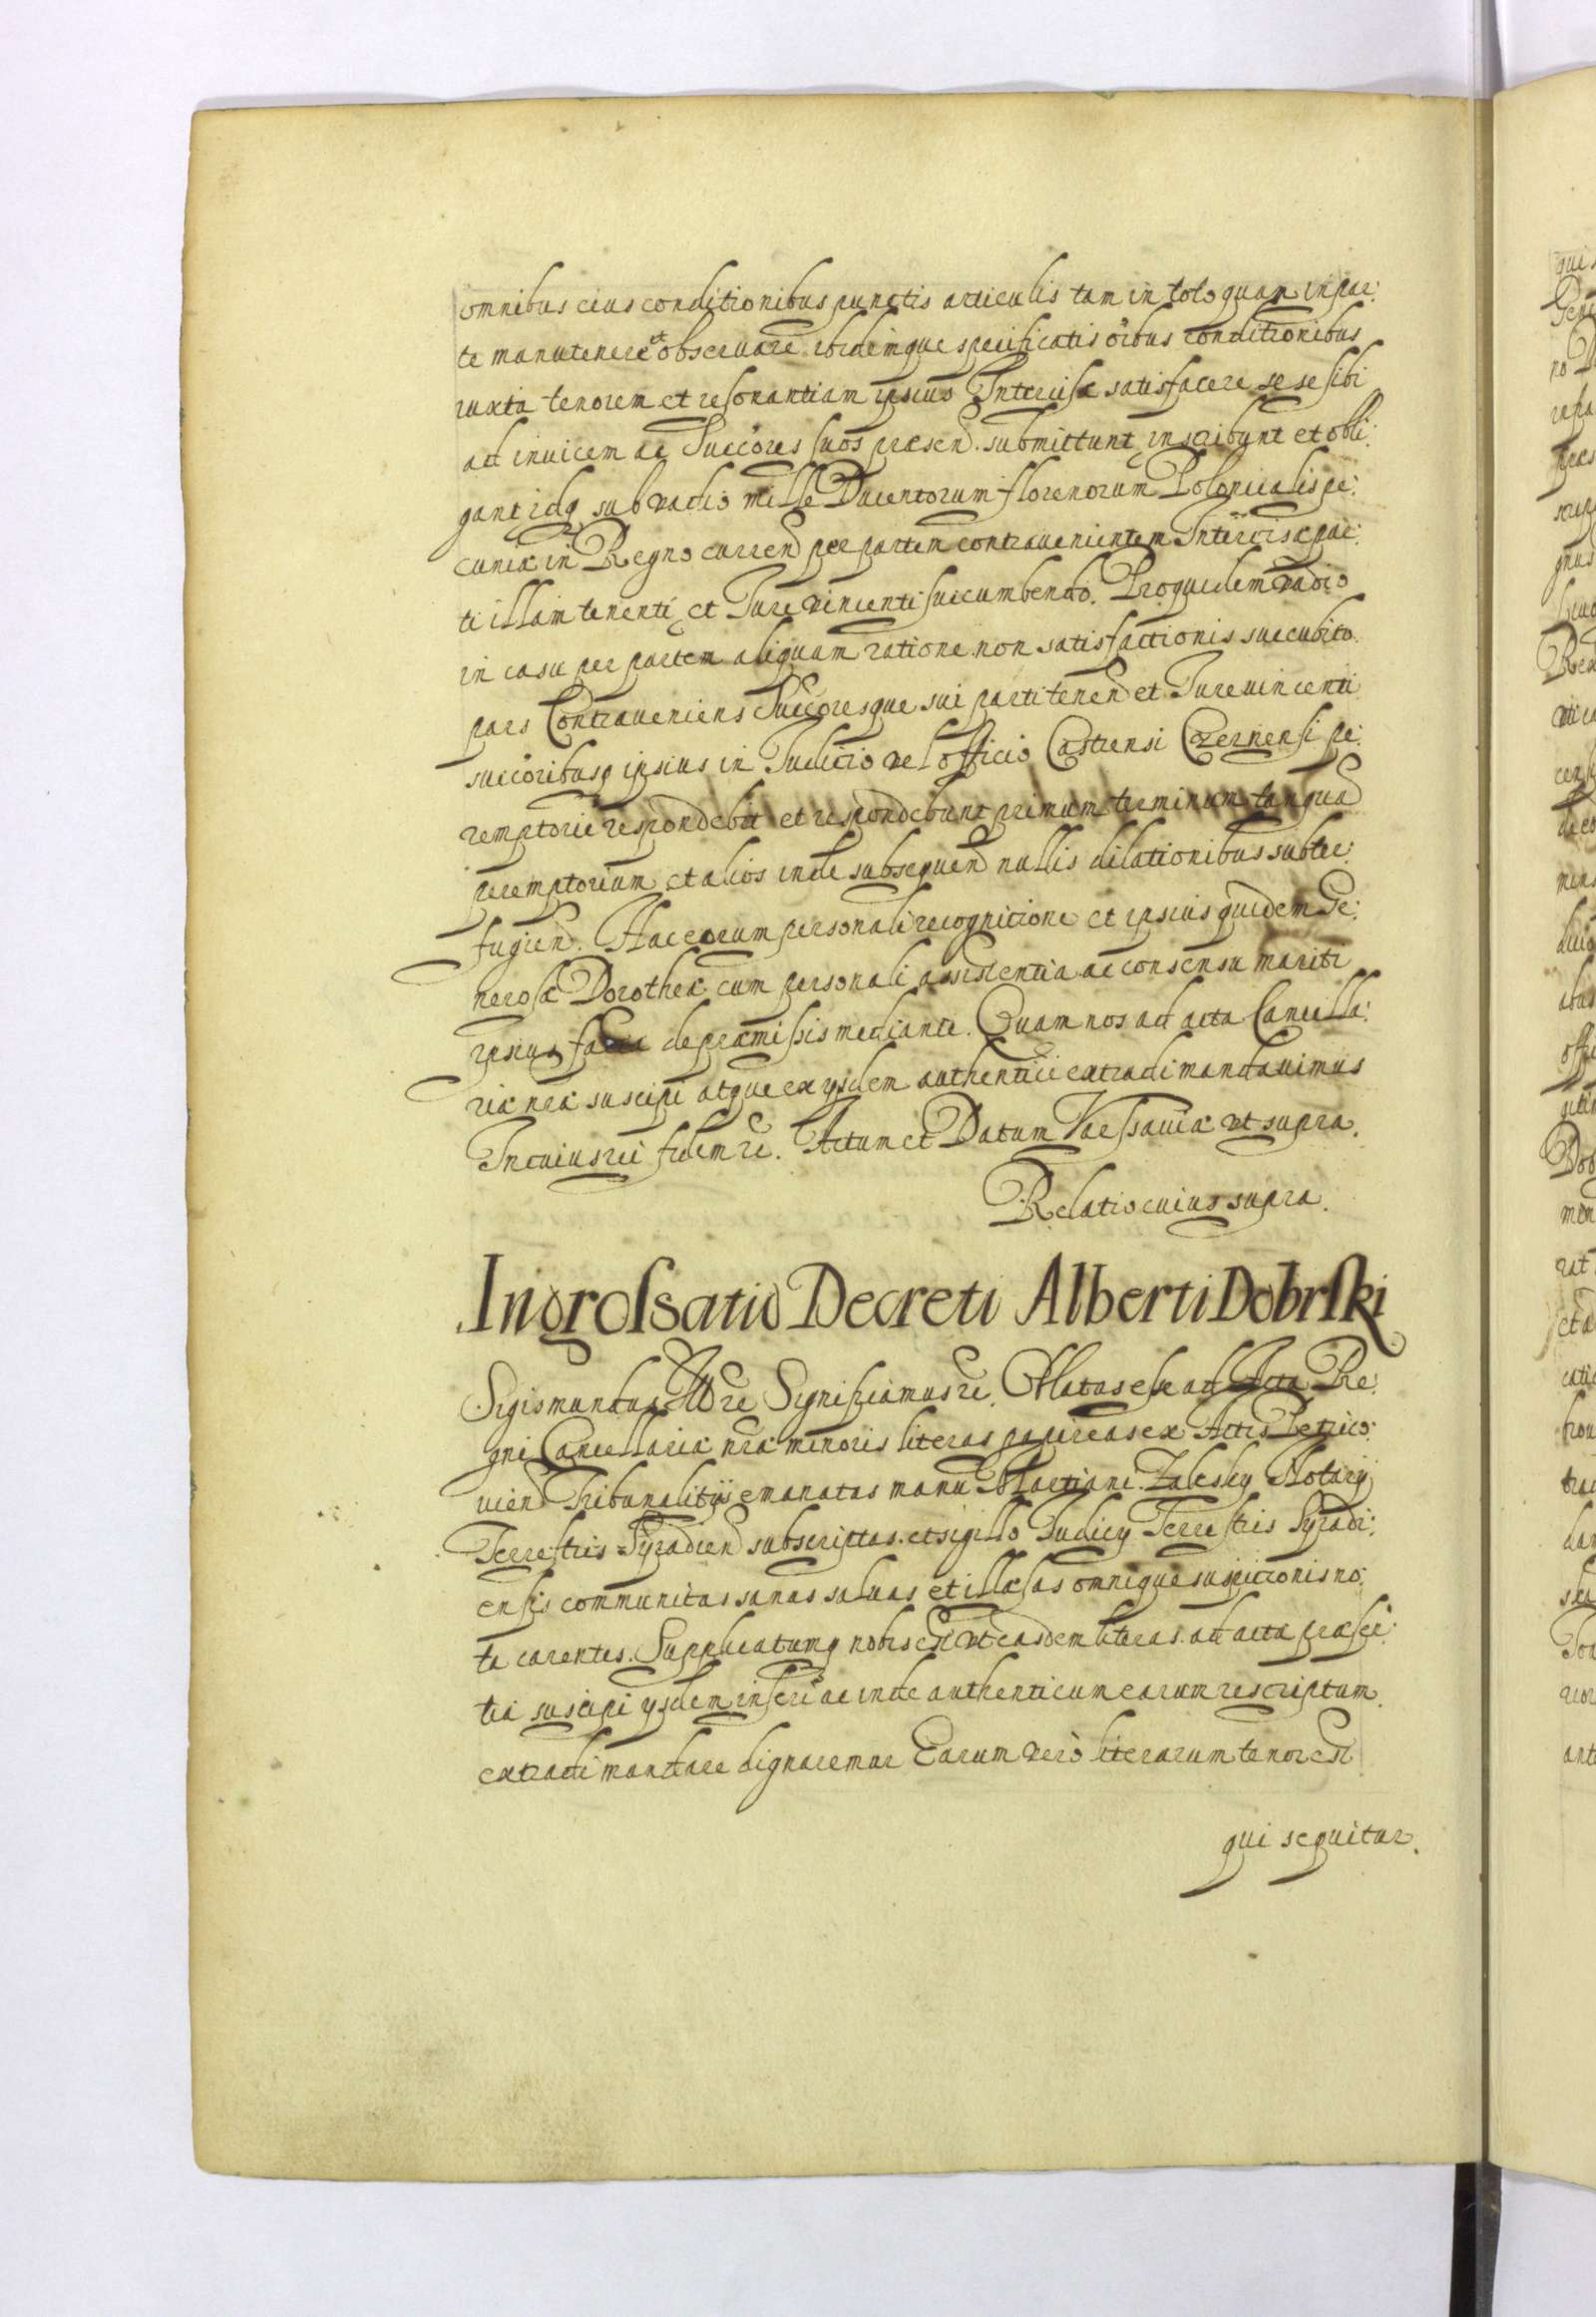 omnibus eius conditionibus punctis articulis tam in toto quam in par:
te manutenere et obseruare ibidemque specificatis oibus conditionibus
iuxta tenorem et resonantiam ipsius Intercisæ satisfacere se se sibi
ad inuicem ac Succores suos præsen. submittunt inscribunt et obli:
gant idq sub vadio mille Ducentorum florenorum Polonicalis pe:
cuniæ in Regno curren per partem contrauenientem Intercisæ par:
ti illam tenenti et Iure vincenti succumbendo. Pro quidem vadio
in casu per partem aliquam ratione non satisfactionis succubito
pars Contraueniens Succoresque sui parti tenen et Iure uincenti
succoribusq ipsius in Iudicio vel officio Castrensi Czernensi pe:
remptorie respondebit et respondebunt primum terminum tanqua
peremptorium et alios inde subsequen nullis dilationibus subter:
fugien. Hac eorum personali recognitione et ipsius quidem Ge:
nerosæ Dorotheæ cum personali assistentia ac consensu mariti
ipsius facta de præmissis mediante. Quam nos ad acta Cancella:
riæ nræ suscipi atque ex ysdem authentice extradi mandauimus
In cuius rei fidem re. Actum et Datum Varssauiæ ut supra.
Relatio cuius supra.
Ingrossatio Decreti Alberti Dobrski
Sigismundus III re Significamus re. Oblatas esse ad Acta Re:
gni Cancellariæ nræ minoris literas papireas ex Actis Petrico:
uien Tribunalitys emanatas manu Martiani Zalesky Notary
Terrestris Syradien subscriptas. et sigillo Iudicy Terrestris Syradi:
ensis communitas sanas saluas et illæsas omnique suspicionis no:
ta carentes. Supplicatumq nobis est vt easdem literas ad acta præfa
tia suscipi ysdem inseri ac inde authenticum earum rescriptum
extradi mandare dignaremur Earum vero literarum tenor est
qui sequitur.